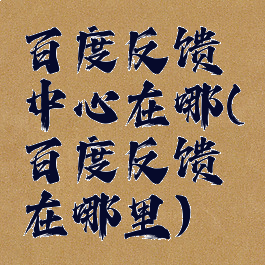 百度反馈
中心在哪(
百度反馈
在哪里)